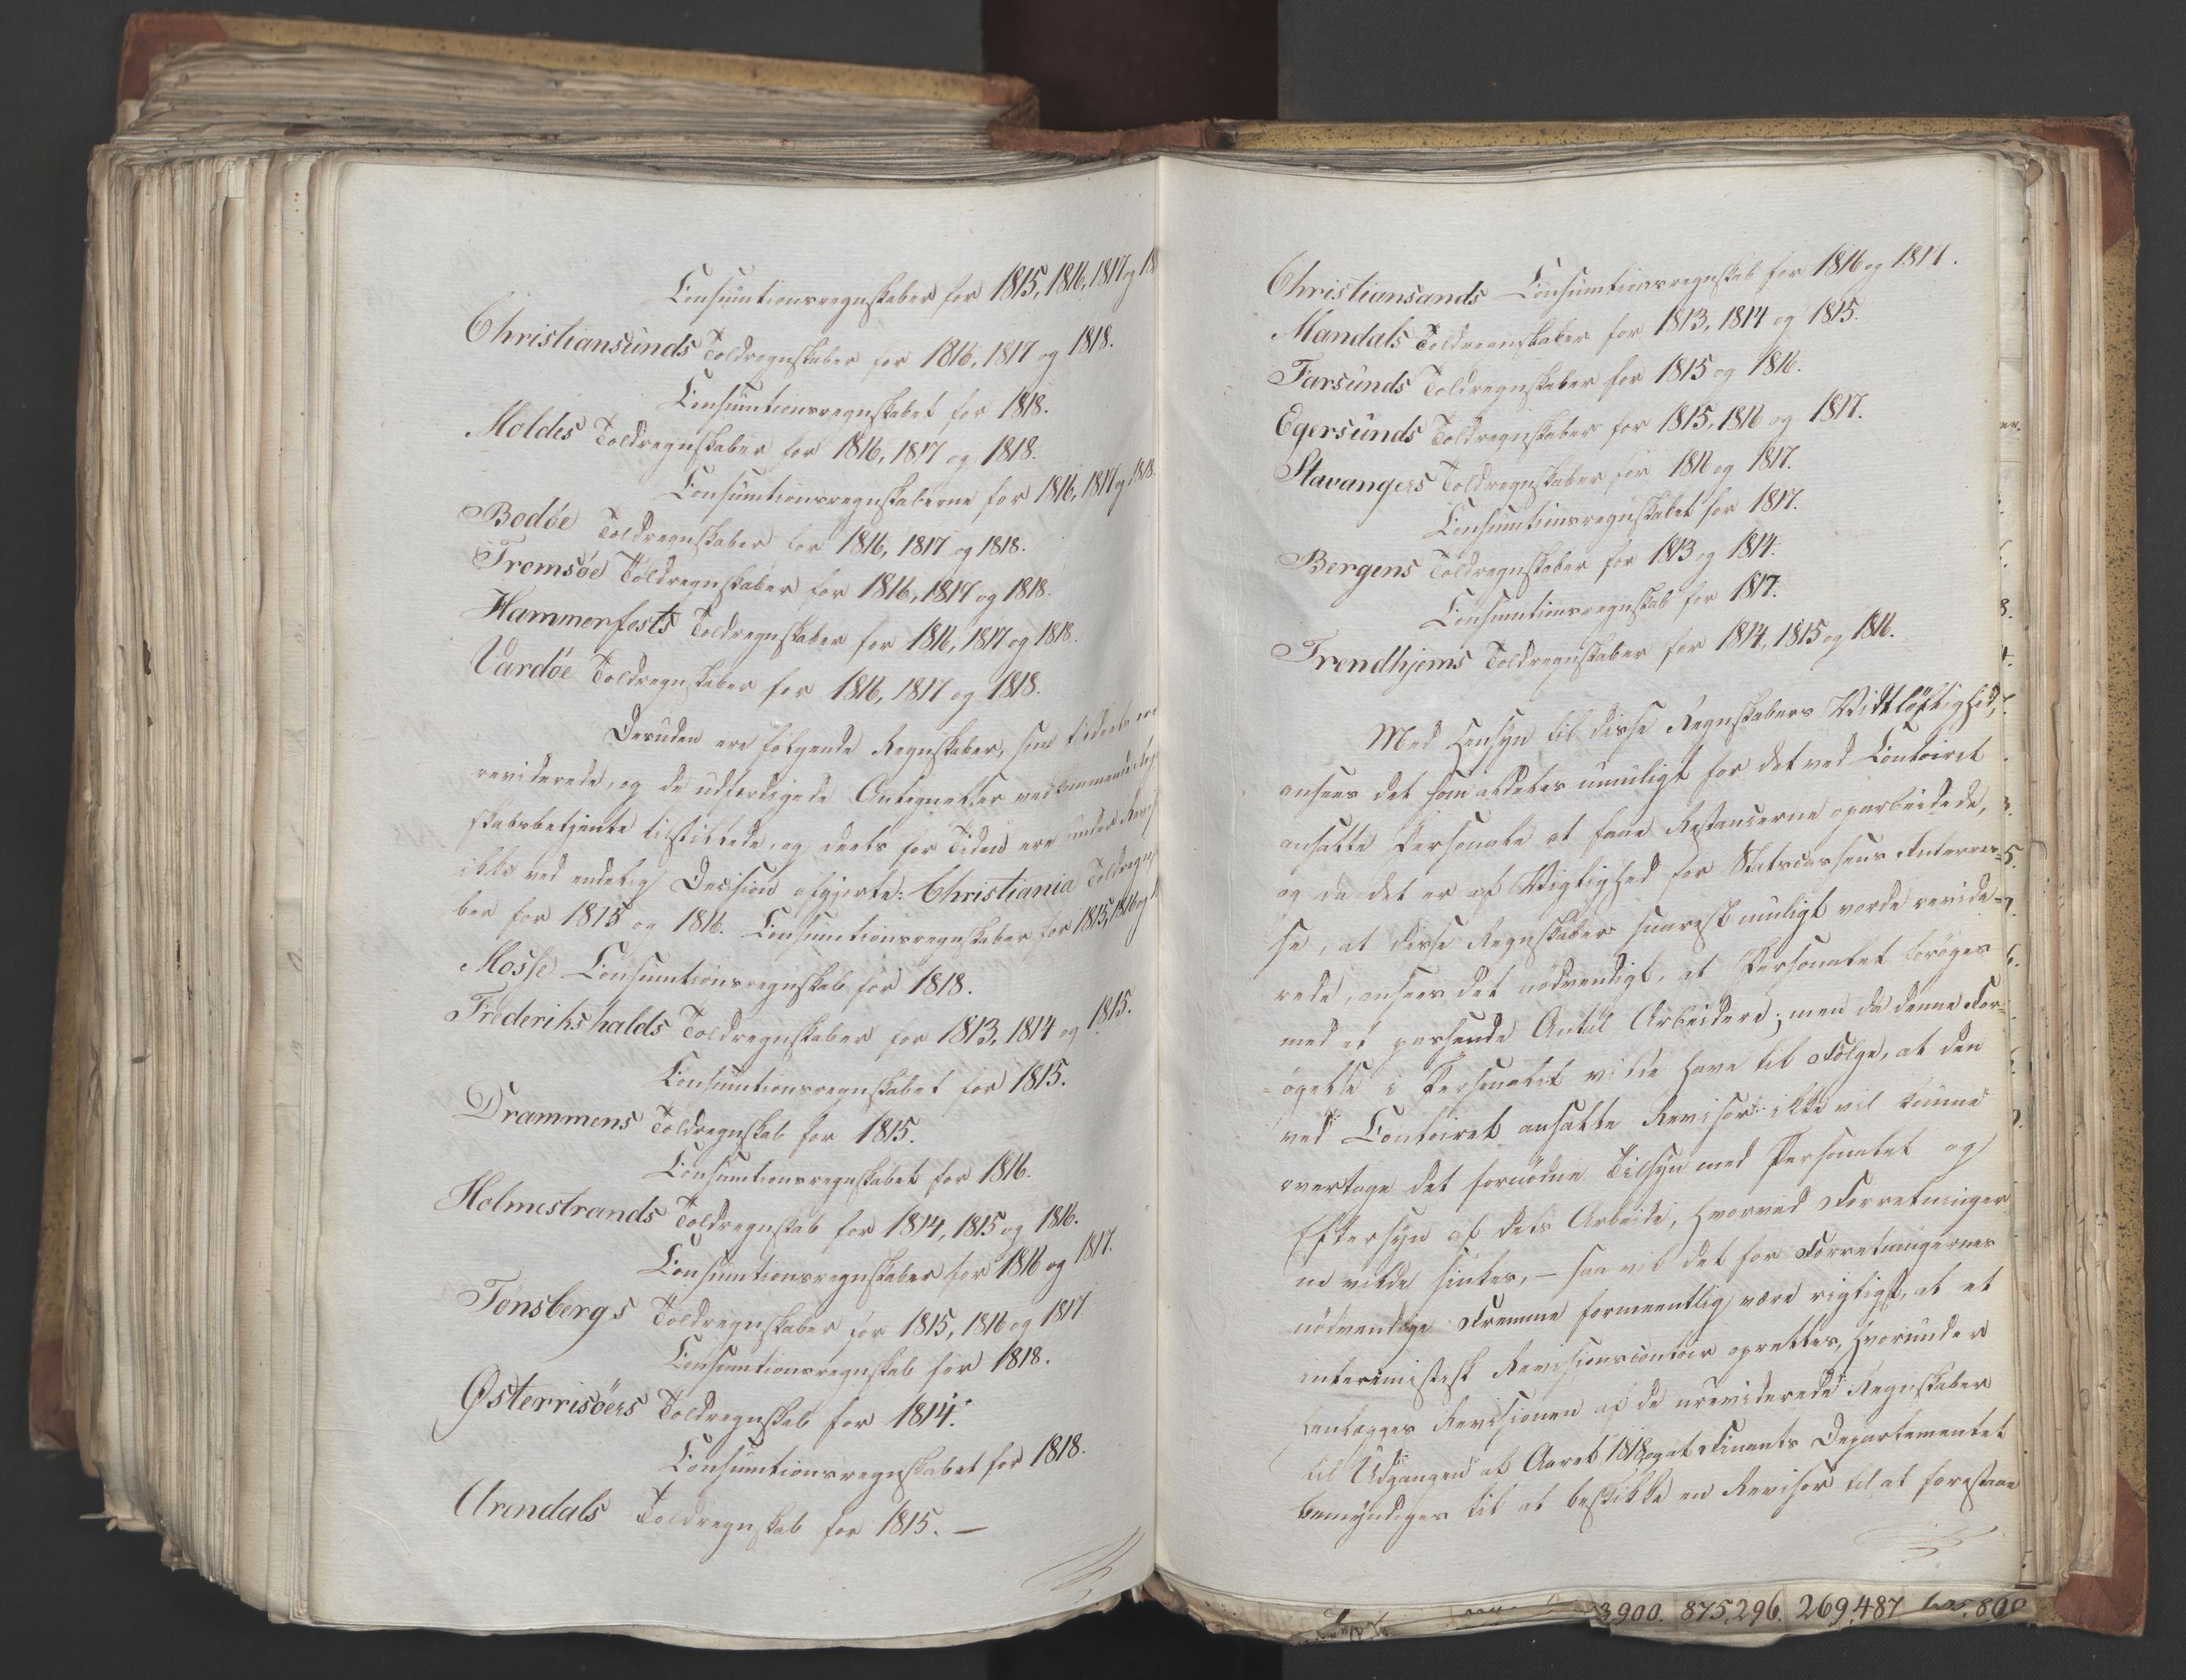 Consumtionsregnskaber for 1815, 1816, 1817 og 18
Christiansunds Toldregnskaber for 1816, 1817 og 1818.
Consumtionsregnskabet for 1818.
Moldes Toldregnskaber for 1816, 1817 og 1818.
Consumtionsregnskaberne for 1816, 1817 og 1818.
Bodøe Toldregnskaber for 1816, 1817 og 1818.
Tromsøe Toldregnskaber for 1816, 1817 og 1818.
Hammerfests Toldregnskaber for 1816, 1817 og 1818.
Vardøe Toldregnskaber for 1816, 1817 og 1818.
Desuden ere følgende Regnskaber, som tildeels ere
reviderede, og de udfærdigede Antegnelser vedkommende Reg
skabsbetjente tilstillede, og deels for Tiden ere under Revis
ikke ved endelig Decision afgjorte: Christiania Toldregns
ber for 1815 og 1816. Consumtionsregnskaber for 1815, 1816 og 1
Mosse Consumtionsregnskab for 1818.
Frederikshalds Toldregnskaber for 1813, 1814 og 1815.
Consumtionsregnskabet for 1815.
Drammens Toldregnskab for 1815.
Consumtionsregnskabet for 1816.
Holmestrands Toldregnskab for 1814, 1815 og 1816.
Consumtionsregnskaber for 1816 og 1817.
Tønsbergs Toldregnskaber for 1815, 1816 og 1817
Consumtionsregnskab for 1818.
Østerrisöers Toldregnskab for 1814.
Consumtionsregnskabet for 1818.
Arendals Toldregnskab for 1815. —
Christiansands Consumtionsregnskab for 1816 og 1817.
Mandals Toldregnskaber for 1813, 1814 og 1815.
Farsunds Toldregnskaber for 1815 og 1816.
Egersunds Toldregnskaber for 1815, 1816 og 1817.
Stavangers Toldregnskaber for 1816 og 1817.
Consumtionsregnskabet for 1817.
Bergens Toldregnskaber for 1813 og 1814.
Consumtionsregnskab for 1817.
Trondhjems Toldregnskaber for 1814, 1815 og 1816.
Med Hensyn til disse Regnskabers Vidtløftighed,
ansees det som aldeles umuligt for det ved Contoiret
ansatte Personale at faae Restancerne oparbeidede,
og da det er af Vigtighed for Statscassens Interes-
se, at disse Regnskaber snarest muligt vorde revide-
rede, ansees det nødvendigt, at Personalet forøges
med et passende Antal Arbeidere; men da denne For-
øgelse i Personalet vilde have til Følge, at den
ved Contoiret ansatte Revisor ikke vil kunne
overtage det fornødne Tilsyn med Personalet og
Eftersyn af dets Arbeide, hvorved Forretninger
ne vilde sinkes, — saa vil det for Forretningernes
nødvendige Fremme formeentlig være rigtigst, at et
interimistisk Revisionscontoir oprettes, hvorunder
henlægges Revisionen af de ureviderede Regnskaber
til Udgangen af Aaret 1818, og at Finants Departementet
bemyndiges til at beskikke en Revisor til at forestaae
3900. 875,296. 269,487